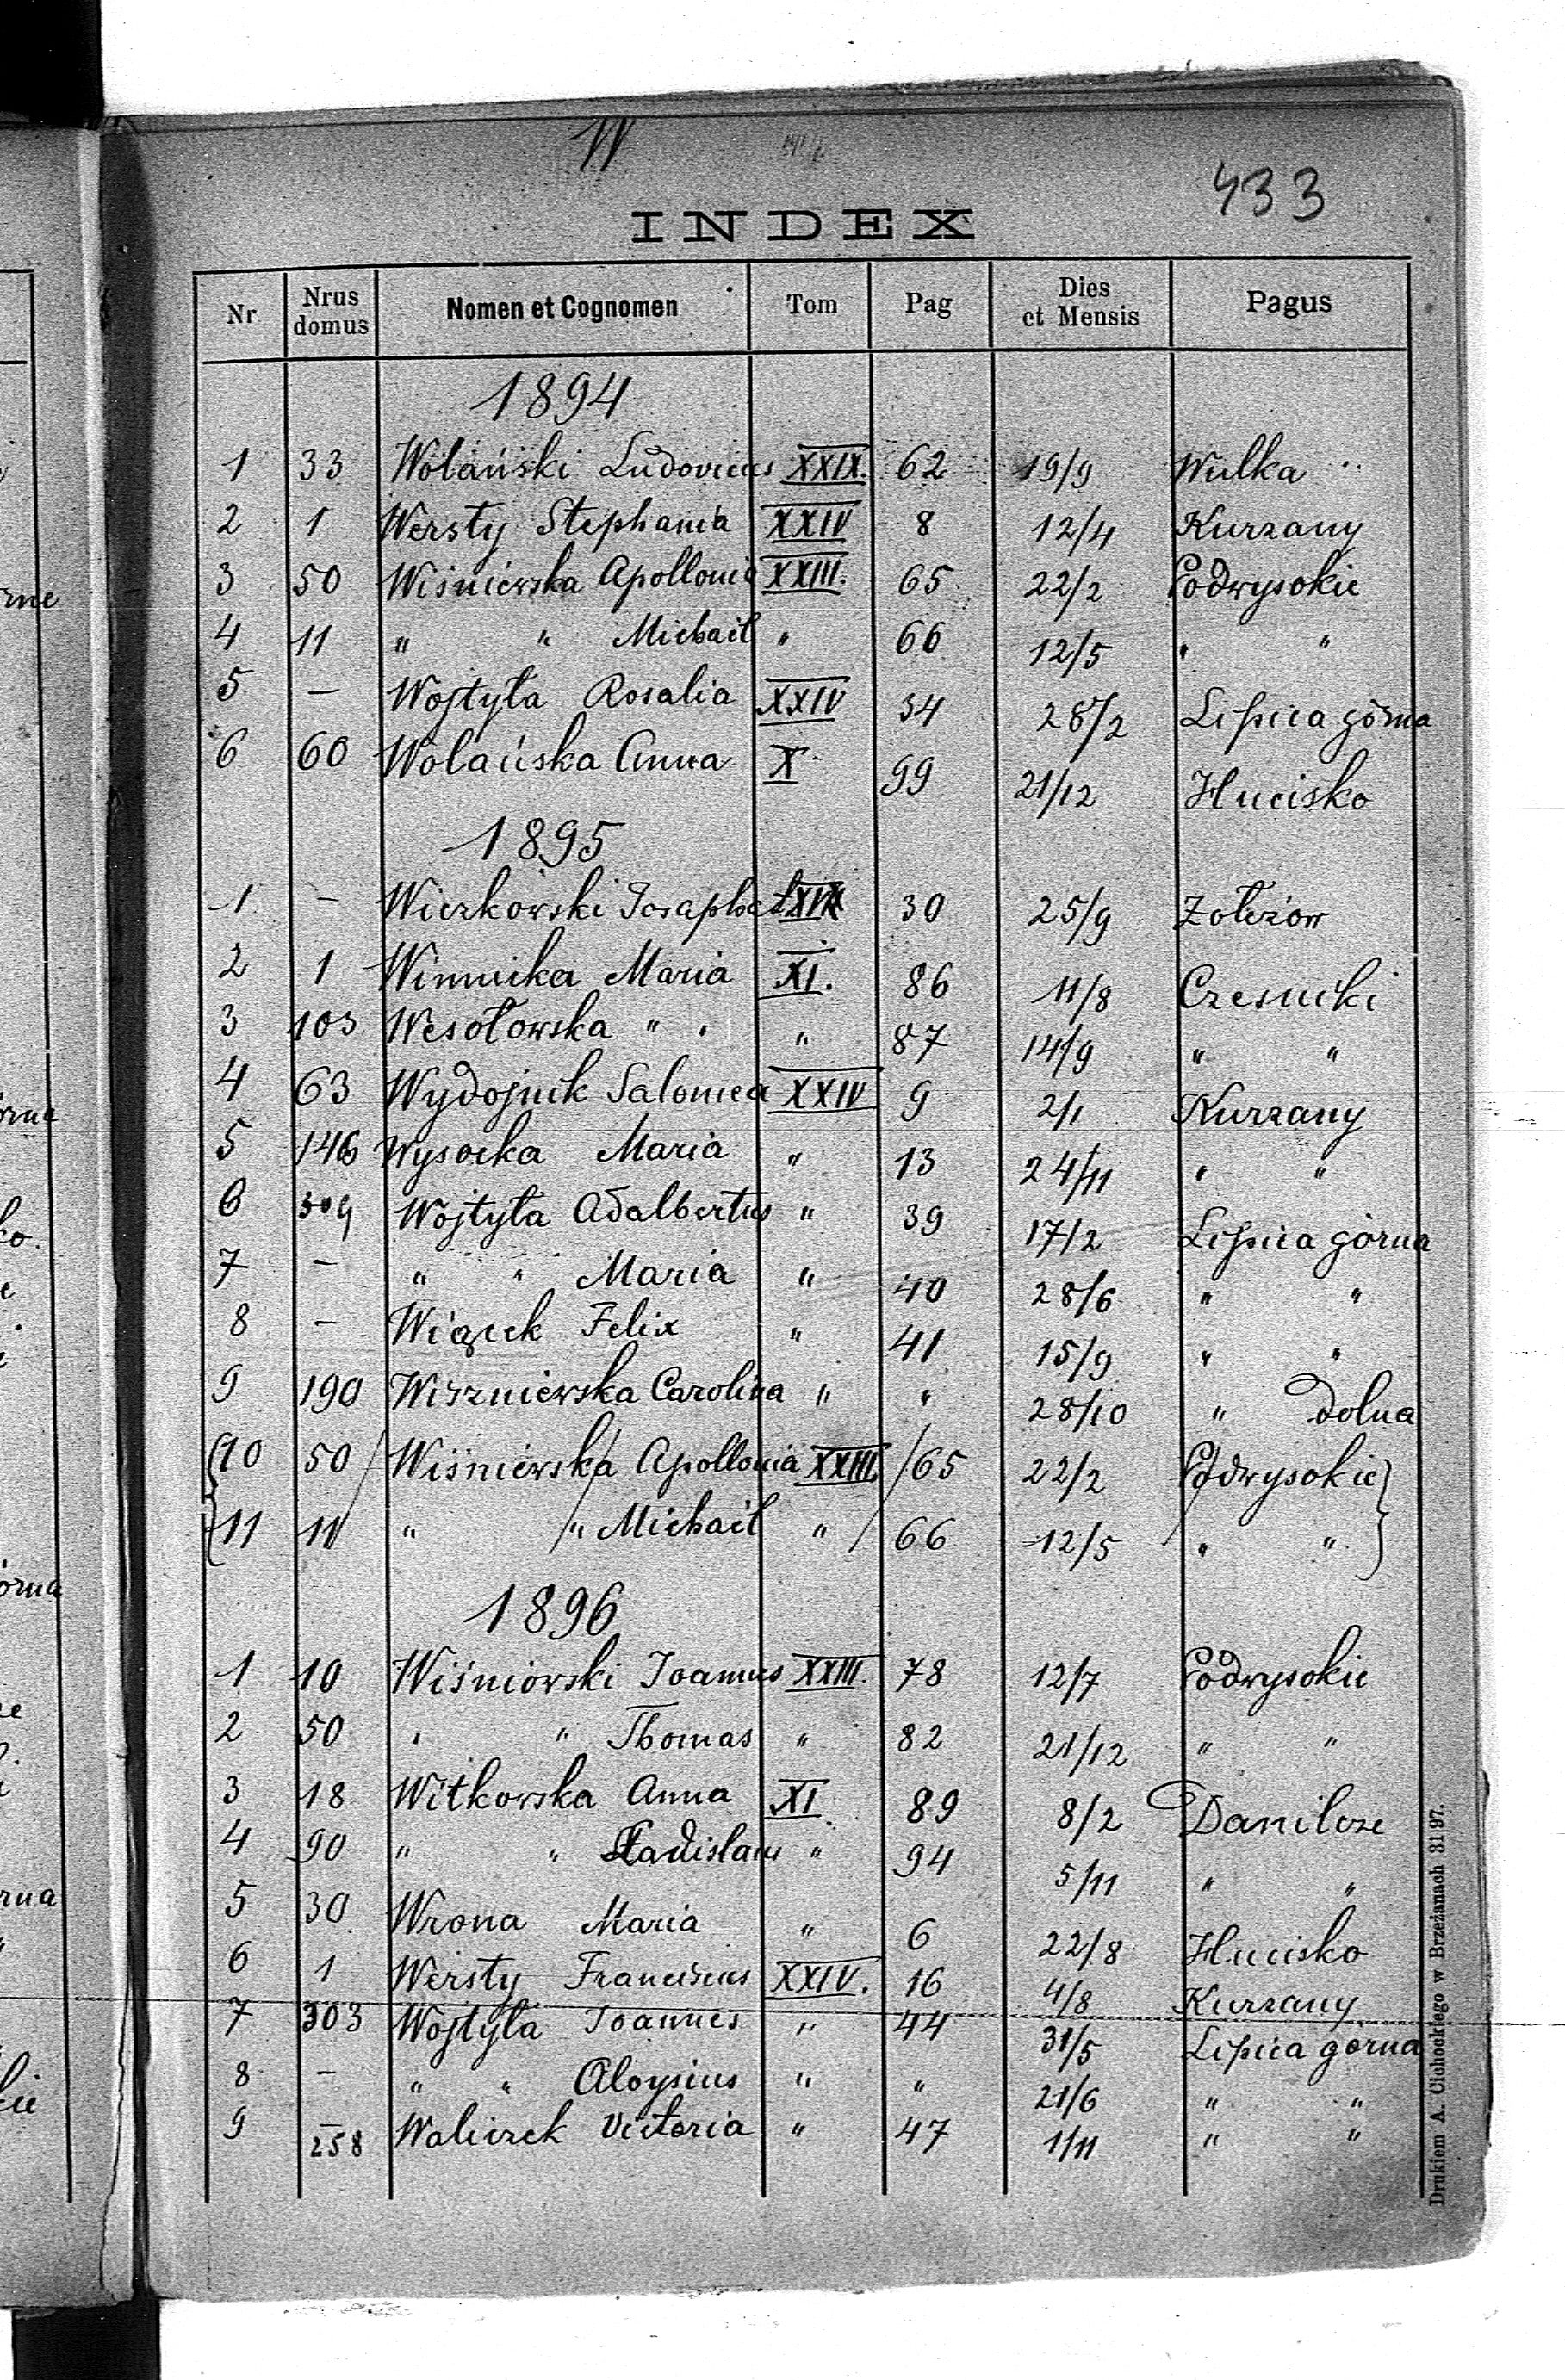 W
433
INDEX
Nr Nrus domus Nomen et Cognomen Tom Pag Dies et Mensis Pagus
1894
1 33 Wolański Ludovicus XXIX. 62 19/9 Wulka
2 1 Wersty Stephania XXIV 8 12/4 Kurzany
3 50 Wiśniewska Apollonia XXIII. 65 22/2 Podwysokie
4 11 " " Michail " 66 12/5 " "
5 — Wojtyła Rosalia XXIV 34 28/2 Lipica górna
6 60 Wolańska Anna X 99 21/12 Hucisko
1895
1 — Wierkowski Josaphat 30 25/9 Zołczow
2 1 Winnicka Maria XI. 86 11/8 Czesniki
3 103 Wesołowska " " " 87 14/9 " "
4 63 Wydojnik Salomea XXIV 9 2/1 Kurzany
5 146 Wysocka Maria " 13 24/11 " "
6 309 Wojtyła Adalbertus " 39 17/2 Lipica górna
7 — " " Maria " 40 28/6 " "
8 — Wiącek Felix " 41 15/9 " "
9 190 Wiszniewska Carolina " " 28/10 " dolna
10 50 Wiśniewska Apollonia XXIII. 65 22/2 Podwysokie
11 11 " " Michail " 66 12/5 " "
1896
1 10 Wiśniowski Joannes XXIII. 78 12/7 Podwysokie
2 50 " " Thomas " 82 21/12 " "
3 18 Witkowska Anna XI. 89 8/2 Danilcze
4 90 " " Ladislaus " 94 5/11 " "
5 30 Wrona Maria " 6 22/8 Hucisko
6 1 Wersty Franciscus XXIV. 16 4/8 Kurzany
7 303 Wojtyła Joannes " 44 31/5 Lipica gorna
8 — " " Aloysius " " 21/6 " "
9 — 258 Waliczek Victoria " 47 1/11 " "
Drukiem A. Cichockiego w Brzeżanach 31|97.